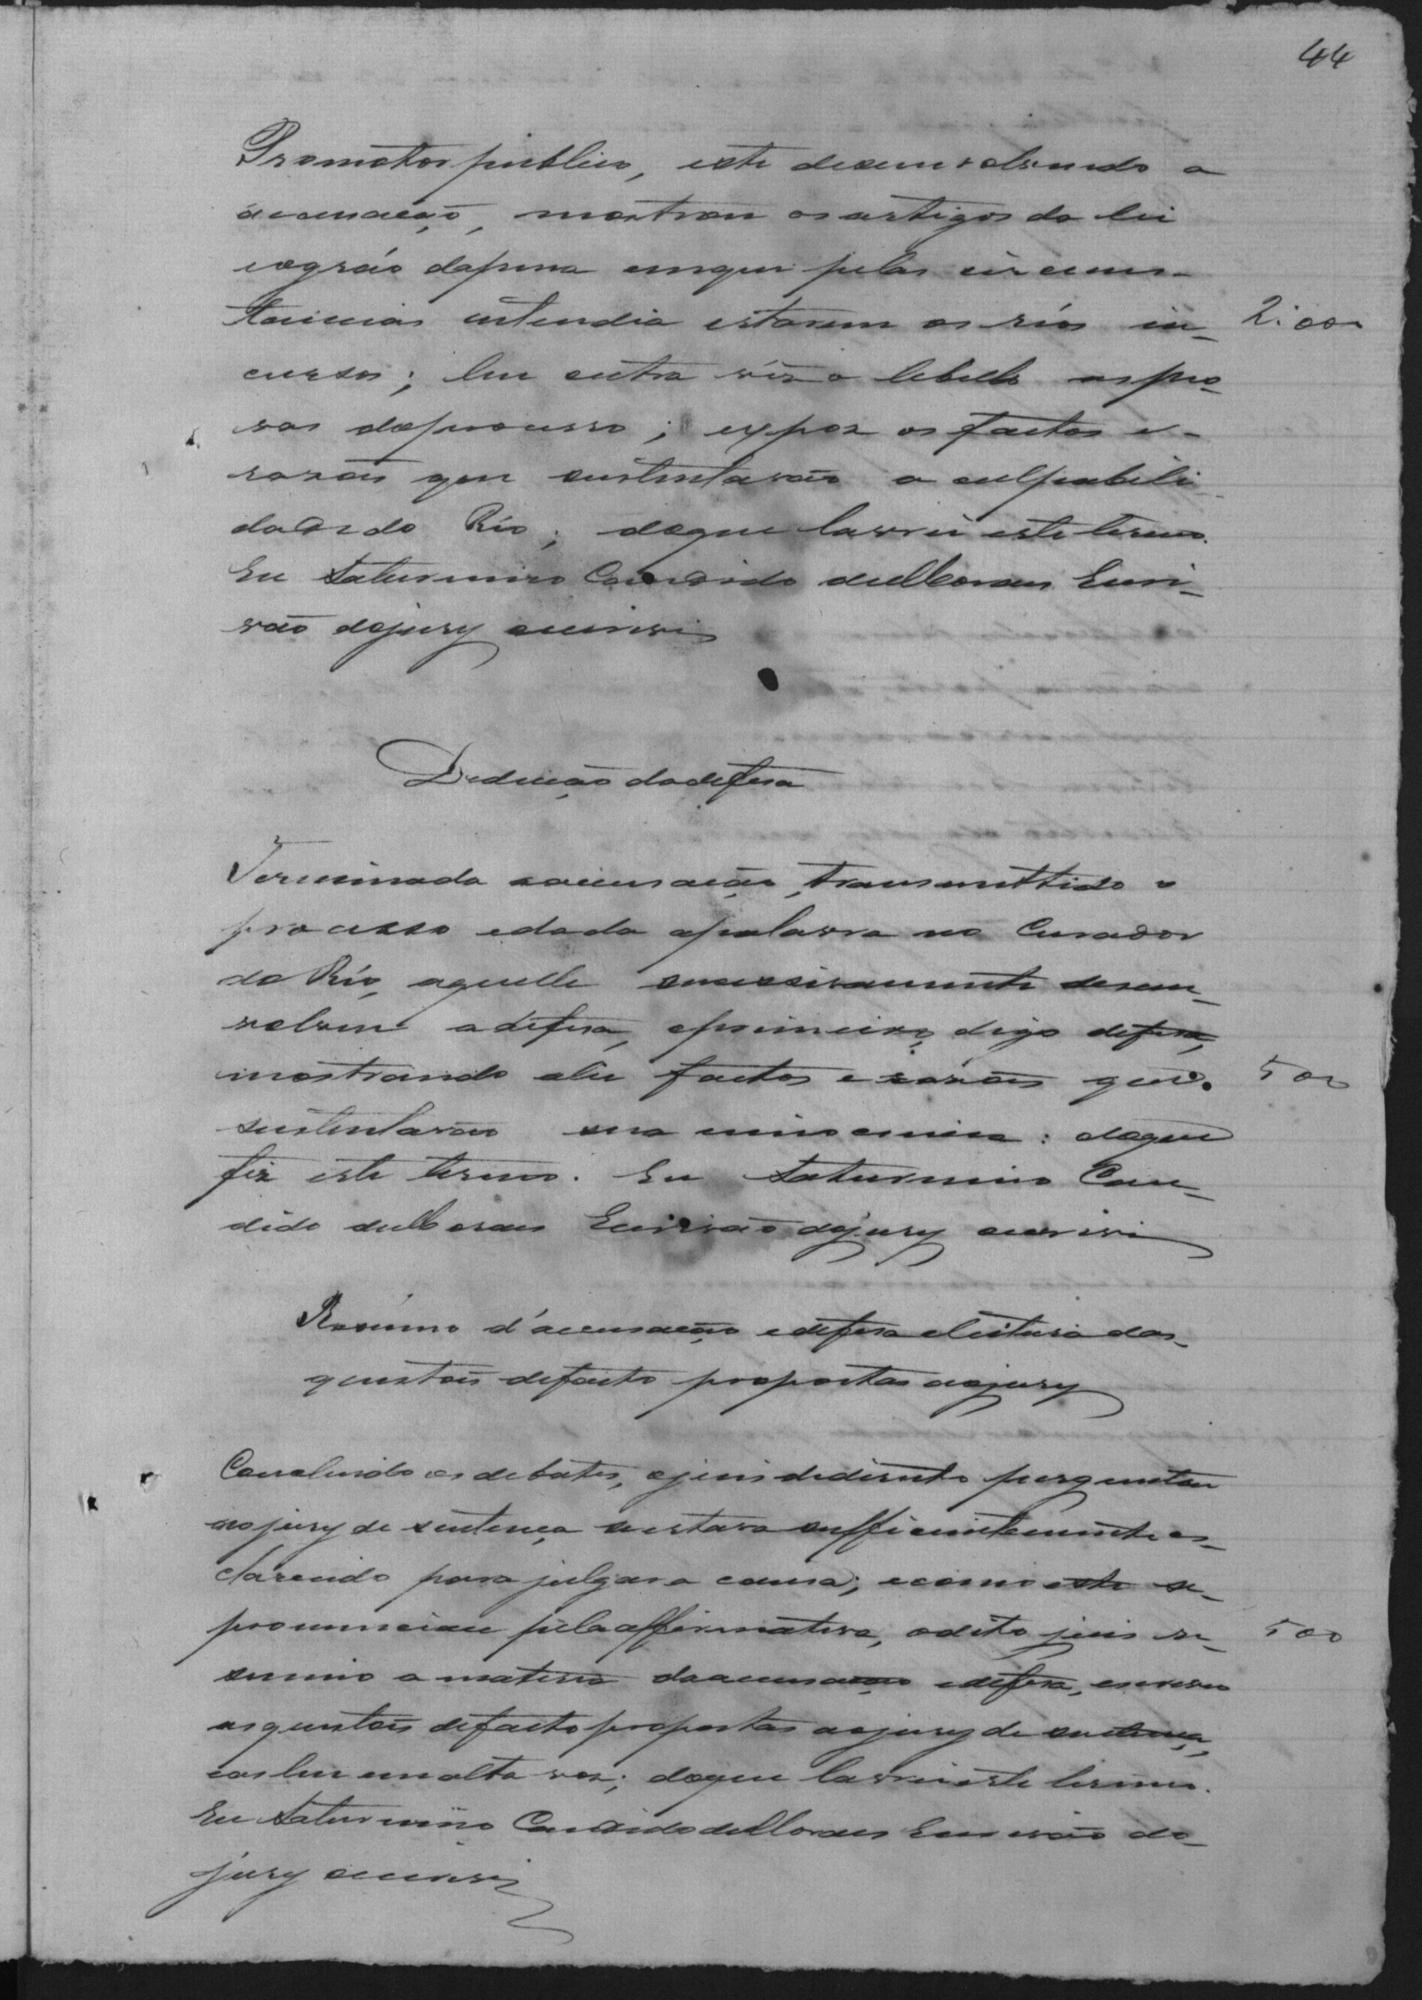 44
Promotor publico, este desenvolvendo a
accusação, mostrou os artigos da lei
eográo dapena emque pelas circuns-
tancias entendia estarem os réos in- 2:000
cursos; leu outra vez o libello as pro-
vas doprocesso; expoz os factos e
razoẽs que sustentavão a culpabili-
dade do Réo; doque lavrei este termo.
Eu Saturnino Candido de Moraes Escri-
vão dojury escrevi
Dedução dadefesa
Terminada aaccusação, transmittido o
processo edada apalavra ao Curador
do Réo, aquelle successivamente desen-
volveu a defesa, eprimeiro, digo defesa,
mostrando alei factos e razoẽs que 500
sustentavão sua innocencia: doque
fiz este termo. Eu Saturnino Can-
dido de Moraes Escrivão dojury escrevi
Resumo d'accusação edefesa eleitura das
questoẽs defacto propostas aojury
Concluido os debates, ojuis dedireito perguntou
aojury de sentença se estava sufficientemente es-
clarecido para julgar a causa; ecomo este se
pronunciou pelaaffirmativa, odito juis re- 500
sumio a materia daaccusação edefesa, escreveu
asquestoẽs defacto propostas aojury de sentença,
easleu emalta voz; doque lavrei este termo.
Eu Saturnino Candido de Moraes Escrivão do
jury escrevi